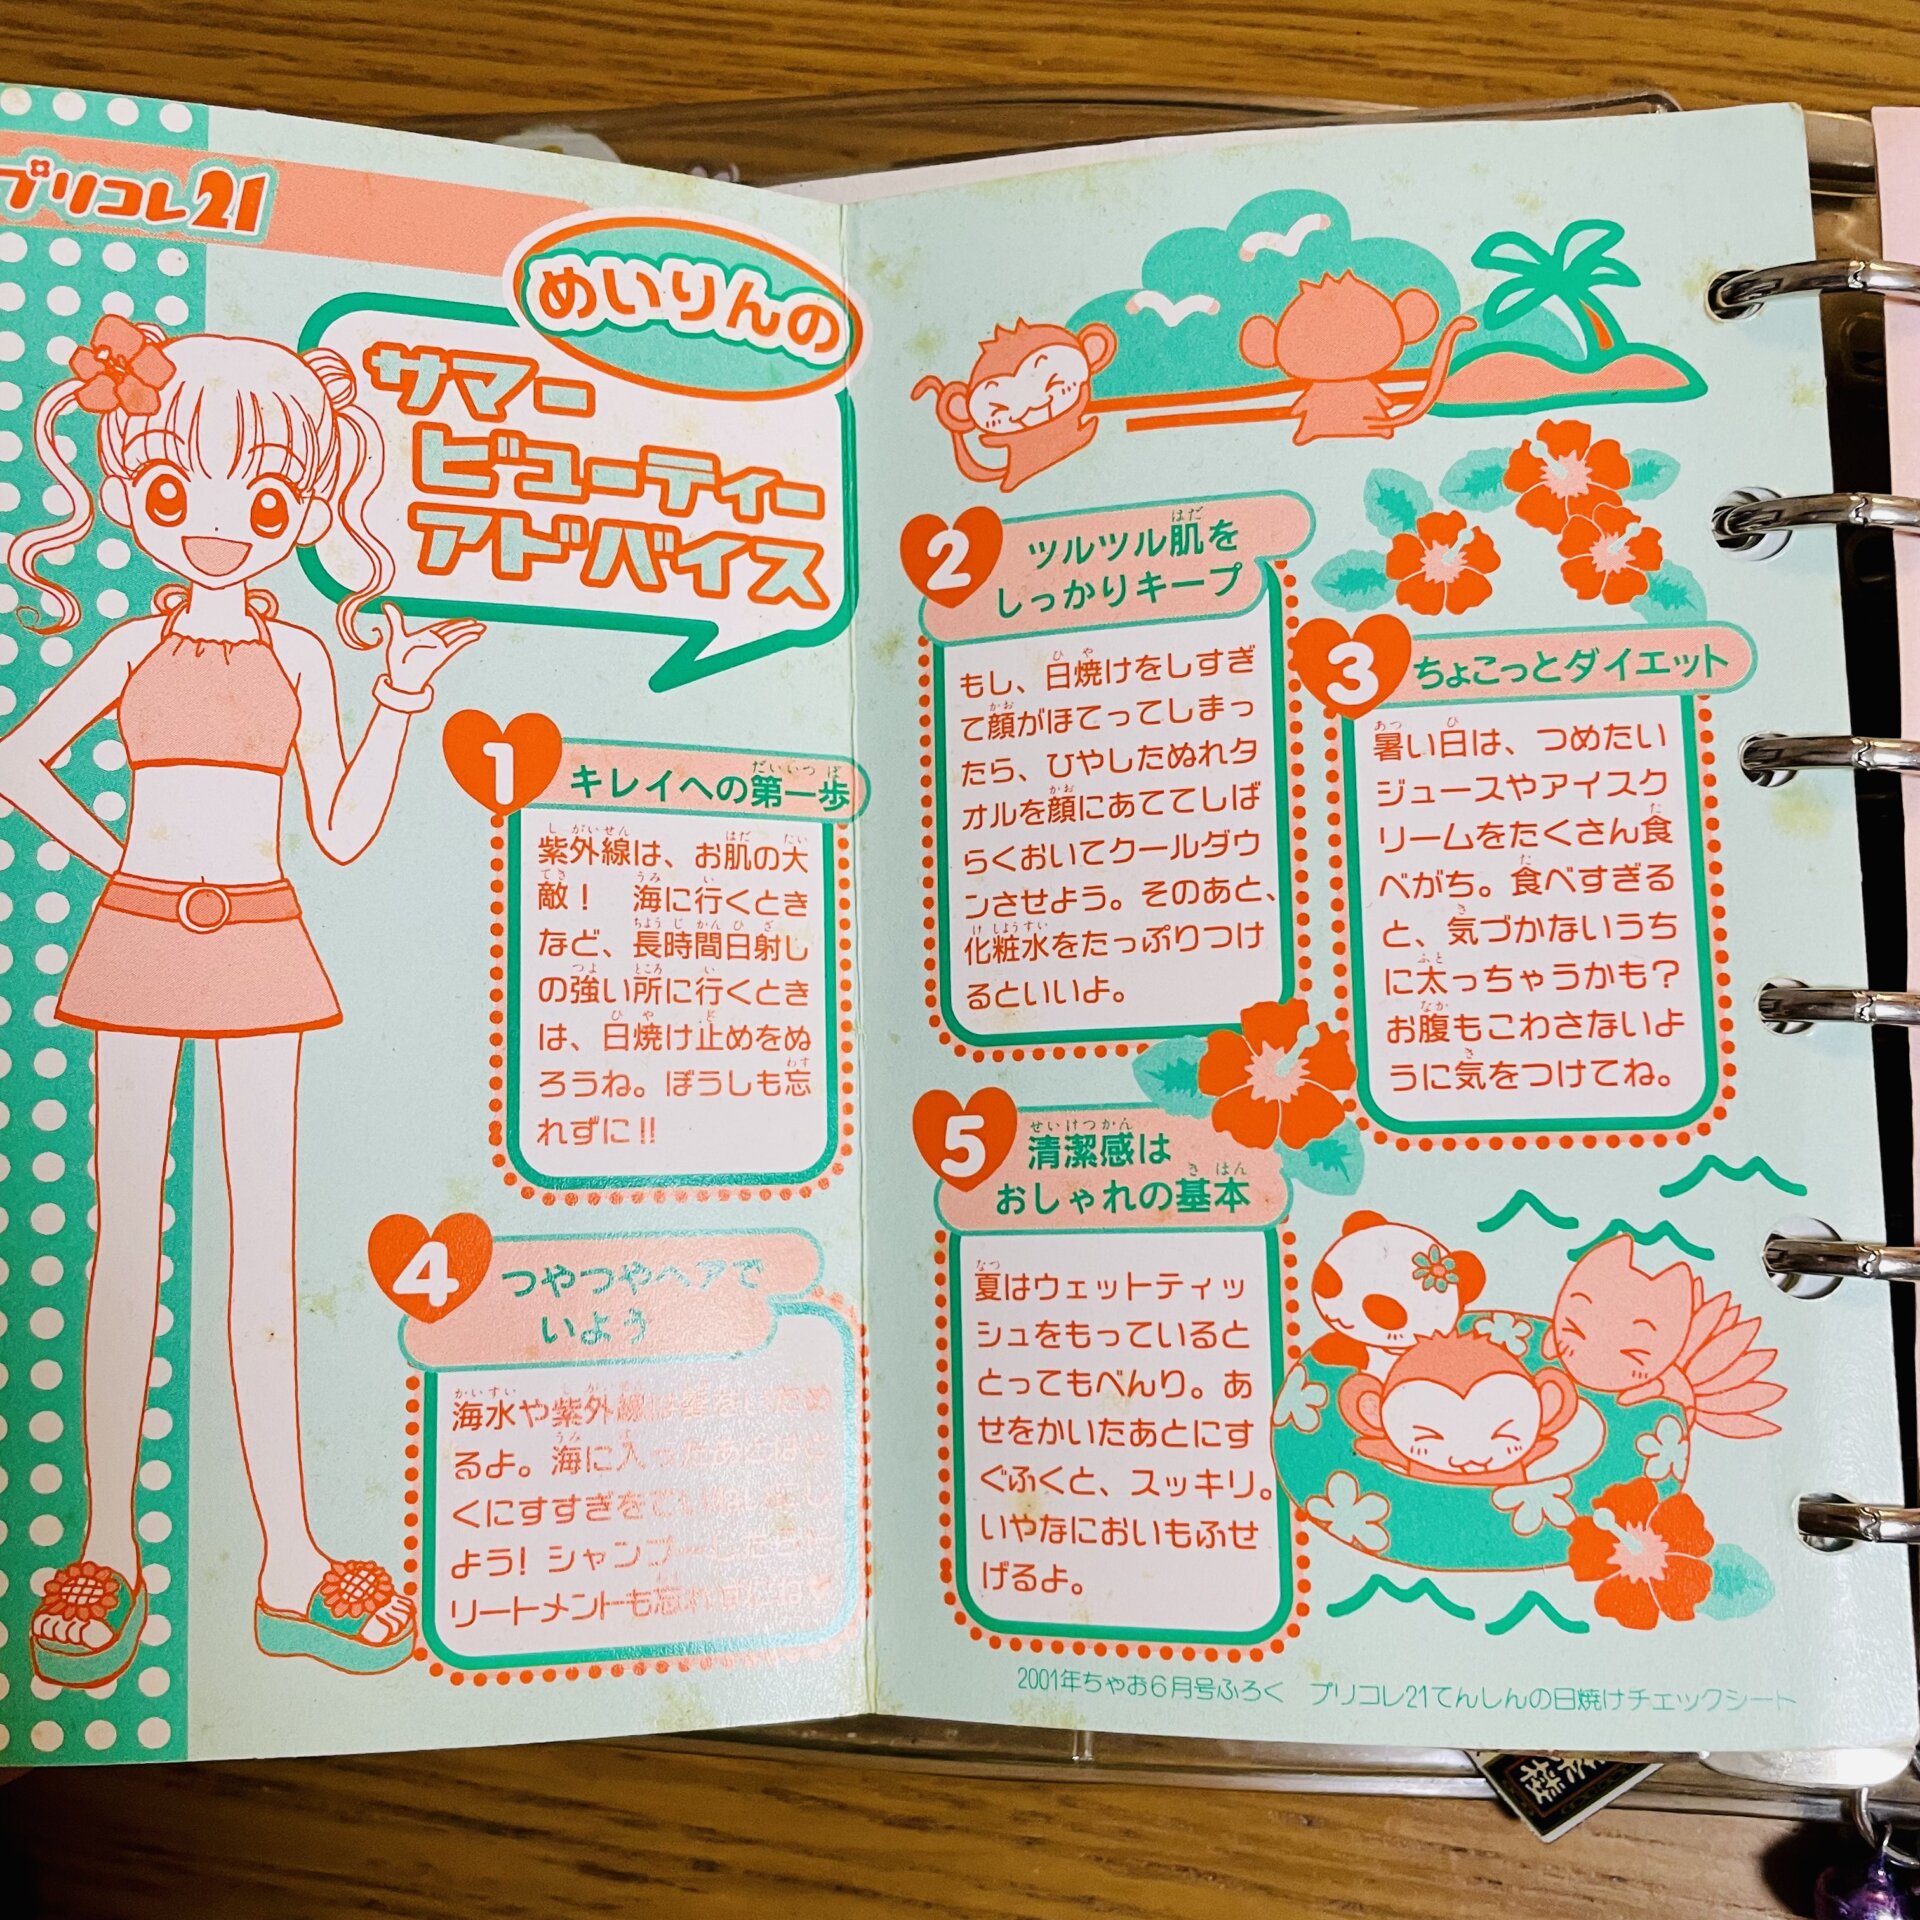 プリコレ21
めいりんの
サマー
ビューティー
アドバイス
1 キレイへの第一歩
紫外線は、お肌の大
敵！ 海に行くとき
など、長時間日射し
の強い所に行くとき
は、日焼け止めをぬ
ろうね。ぼうしも忘
れずに!!
2 ツルツル肌を
しっかりキープ
もし、日焼けをしすぎ
て顔がほてってしまっ
たら、ひやしたぬれタ
オルを顔にあててしば
らくおいてクールダウ
ンさせよう。そのあと、
化粧水をたっぷりつけ
るといいよ。
3 ちょこっとダイエット
暑い日は、つめたい
ジュースやアイスク
リームをたくさん食
べがち。食べすぎる
と、気づかないうち
に太っちゃうかも？
お腹もこわさないよ
うに気をつけてね。
4 つやつやヘアで
いよう
海水や紫外線は髪をいため
るよ。海に入ったあとはよ
くにすすぎをていねいにし
よう! シャンプー
リートメントも忘れずにね
5 清潔感は
おしゃれの基本
夏はウェットティッ
シュをもっていると
とってもべんり。あ
せをかいたあとにす
ぐふくと、スッキリ。
いやなにおいもふせ
げるよ。
2001年ちゃお6月号ふろく プリコレ21てんしんの日焼けチェックシート